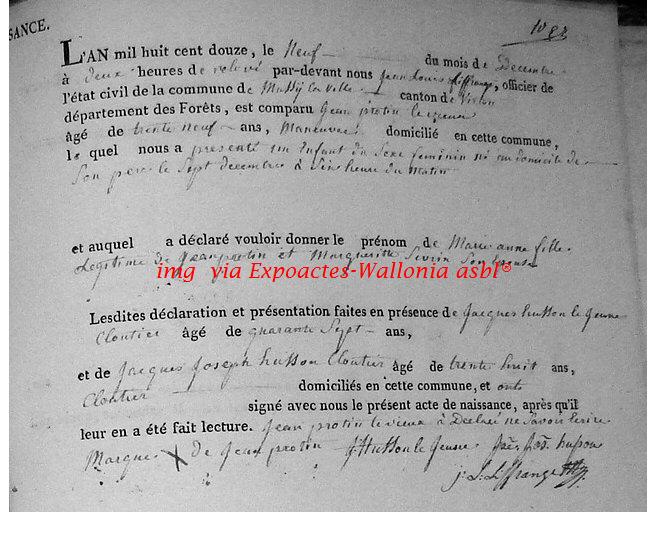 SANCE.
L'AN mil huit cent douze, le Neuf du mois de Decembre
à deux heures de relevé par-devant nous Jean Louis Liffrange, officier de
l'état civil de la commune de Mussy la ville canton de Virton
département des Forêts, est comparu Jean protin le vieux
âgé de trente neuf ans, Maneuvre domicilié en cette commune,
le quel nous a presenté un Enfant du Sexe feminin né au domicile de
Son pere le Sept decembre à Six heure du Matin
et auquel a déclaré vouloir donner le prénom de Marie anne fille
Legitime de Jean protin et Margueritte Son Epouse
img via Expoactes-Wallonia asbl®
Lesdites déclaration et présentation faites en présence de Jacques husson le Jeune
Cloutier âgé de quarante Sept ans,
et de Jacques Joseph husson Cloutier âgé de trente huit ans,
Cloutier domiciliés en cette commune, et ont
signé avec nous le présent acte de naissance, après qu'il
leur en a été fait lecture. Jean protin le vieux à Declaré ne Savoir Ecrire
Marque X de Jean protin J husson le Jeune Jacq. Jos. husson
J. L. Liffrange